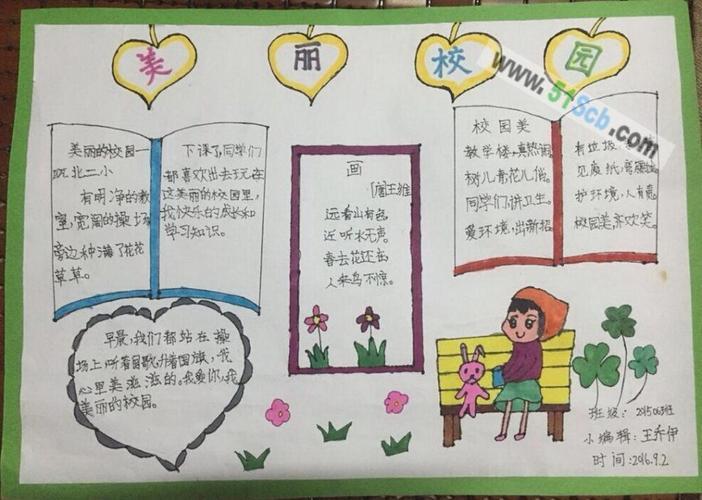 美丽校园
www.51Scb.com
美丽的校园一
北二小
有明净的教
室,宽阔的操场
旁边种满了花花
草草。
下课了,同学们
都喜欢出去玩在
这美丽的校园里,
我们快乐的成长和
学习知识。
画
[唐]王维
远看山有色,
近听水无声。
春去花还在,
人来鸟不惊。
校园美
教学楼,真热闹
树儿青花儿俏。
同学们,讲卫生。
爱环境,出新招
有垃圾
见废纸,弯腰捡
护环境,人有责
校园美亦欢笑。
早晨,我们都站在操
场上,听着国歌,升着国旗,我
心里美滋滋的。我爱你,我
美丽的校园。
班级:201506班
小编辑:王乔伊
时间:2016.9.2